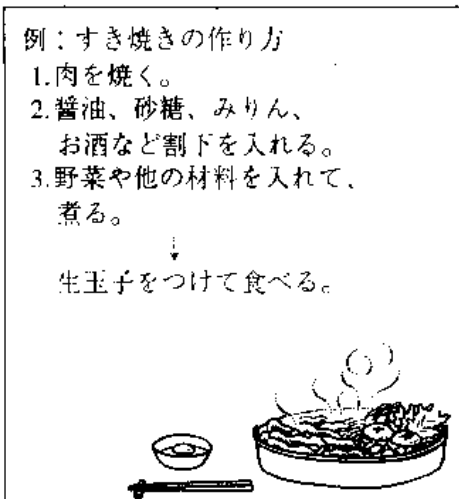 例：すき焼きの作り方
1.肉を焼く。
2.醤油、砂糖、みりん、
お酒など割下を入れる。
3.野菜や他の材料を入れて、
煮る。
↓
生玉子をつけて食べる。